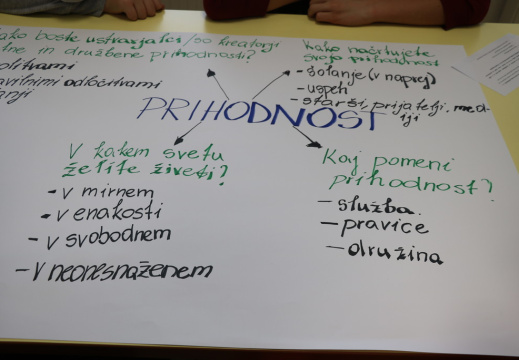 kako boste ustvarjalci/so kreatorji
tne in družbene prihodnosti?
olitvami
avilnimi odločitvami
anji
Kako načrtujete
svojo prihodnost
- šolanje (v naprej)
- uspeti
- starši, prijatelji, med-
iji
PRIHODNOST
V kakem svetu
želite živeti?
- v mirnem
- v enakosti
- v svobodnem
- v neonesnaženem
Kaj pomeni
prihodnost?
- služba.
- pravice
- družina